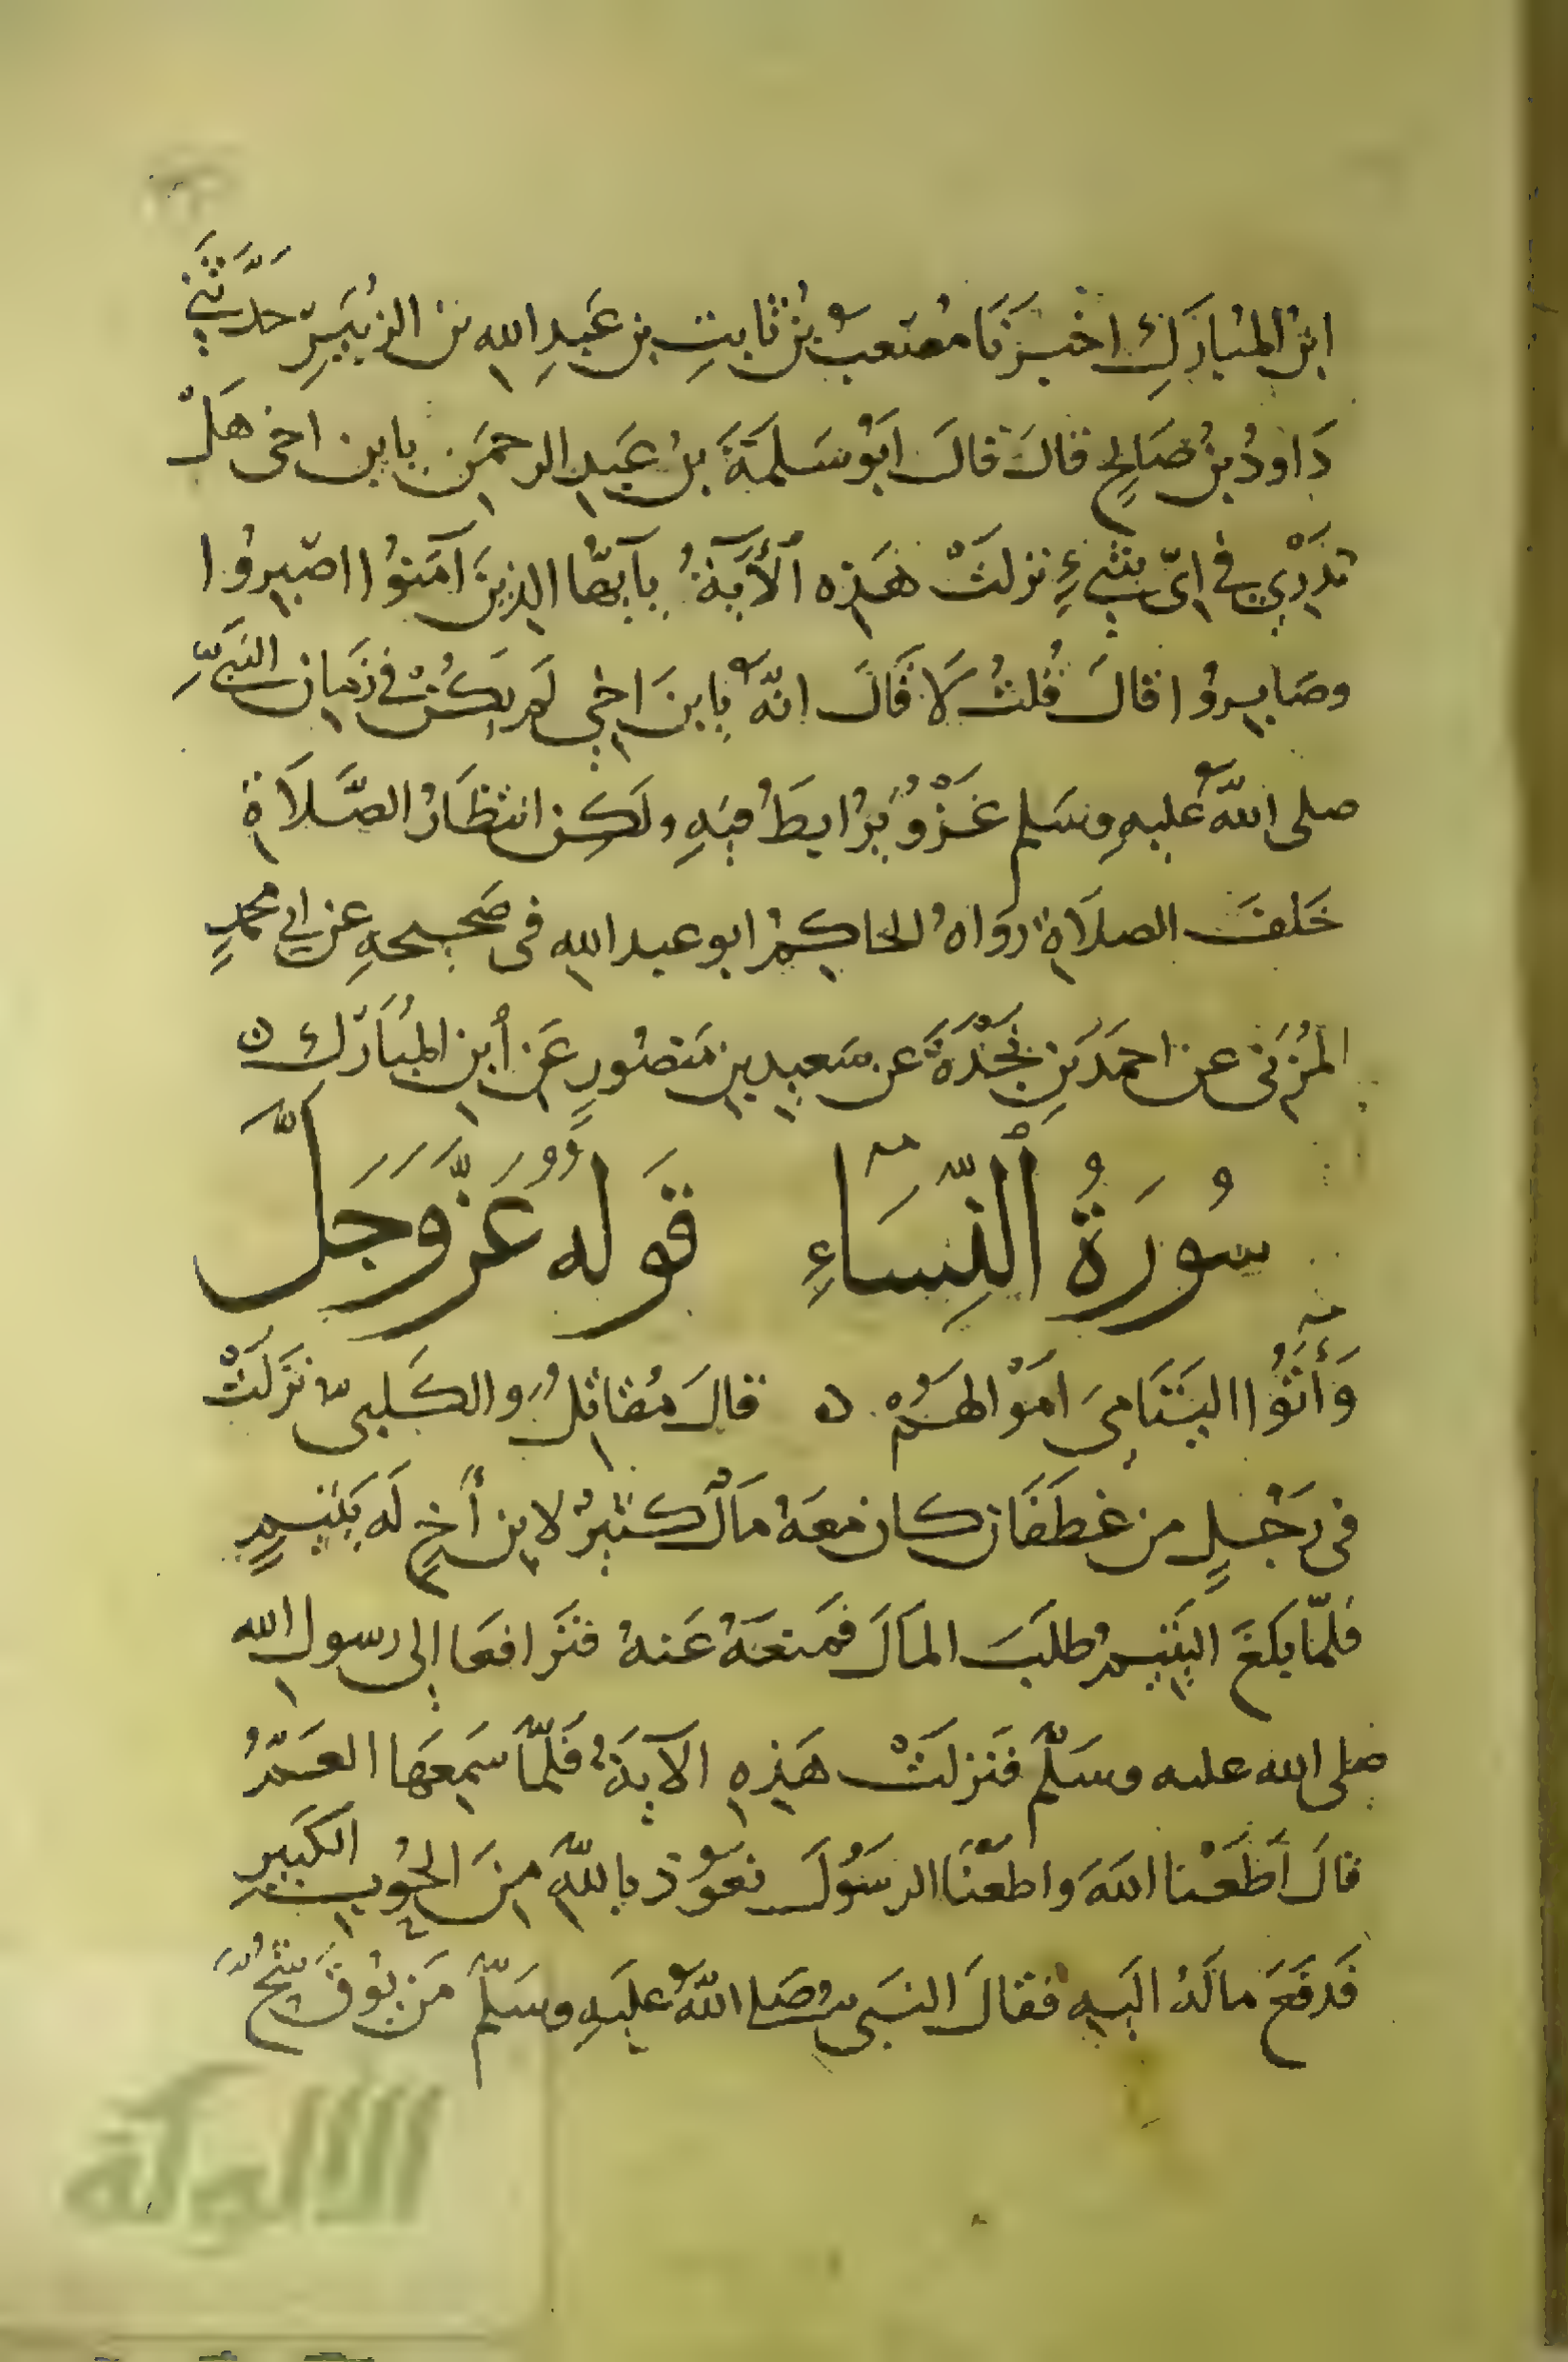 ابنُ المُبَارَكِ اخبَرَنَا مُصْعَبُ بنُ ثَابتِ بنِ عَبدِ الله بن الزُبَيرِ حَدَّثَنِي
دَاودُ بنُ صَالحٍ قَالَ قَالَ ابُو سَلمَةَ بنُ عَبدِ الرحمَن يابن اخى هَلْ
تَدْرِي في ايِّ شَيْءٍ نزلَتْ هَذِه الآيَةُ يآيُّها الذِينَ آمَنُوا اصْبِروُا
وصَابِروُا قالَ قُلتُ لَا قَالَ انّهُ يابنَ اخِي لَم يكُنْ في زمَانِ النَبيِّ
صلى اللهُ عَليهِ وسَلم غَزْوُ يُرَابطُ فيهِ ولكن انتظَارُ الصَّلَاةِ
خَلفَ الصلَاةِ روَاهُ الحاكِمُ ابو عبد الله في صَحيحهِ عن ابي محمدٍ
المُزني عن احمَدَ بنِ نَجْدَةَ عن سَعيدِ بن مَنصُورٍ عَنِ ابنِ المُبَارَك ه
سُورَةُ النِّسَاءِ قَوله عَزَّ وَجَلَّ
وَآتُوا اليَتَامىَ امَوْالهَمُ ه قالَ مُقاتِلُ والكَلبيُّ نزَلَتْ
في رَجُلٍ من غطَفَان كان مَعَهُ مَالٌ كثيرٌ لابنِ أَخٍ لَه يَتيمٍ
فلمّا بَلَغَ اليَتيمُ طلَبَ المَالَ فمَنعَهُ عَنهُ فتَرافعَا إلى رسول الله
صلى الله عليه وسَلّم فَنَزلَتْ هَذِهِ الآيَةُ فَلمّا سَمِعَها العَمُّ
قالَ أطَعْنا اللهَ واطعْنَا الرسُولَ نعُوذ باللهِ منَ الحُوبِ الكَبيرِ
فَدفَعَ مالَهُ الَيهِ فقالَ النبَيُّ صَلى اللهُ عليَهِ وسَلّم مَن يُوقَ شُحَّ
الألوكة